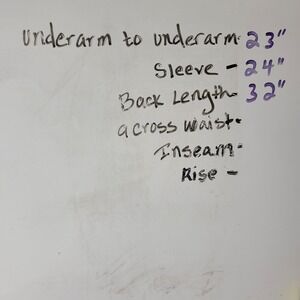 underarm to underarm- 23"
Sleeve - 24"
Back Length- 32"
across waist-
Inseam-
Rise -